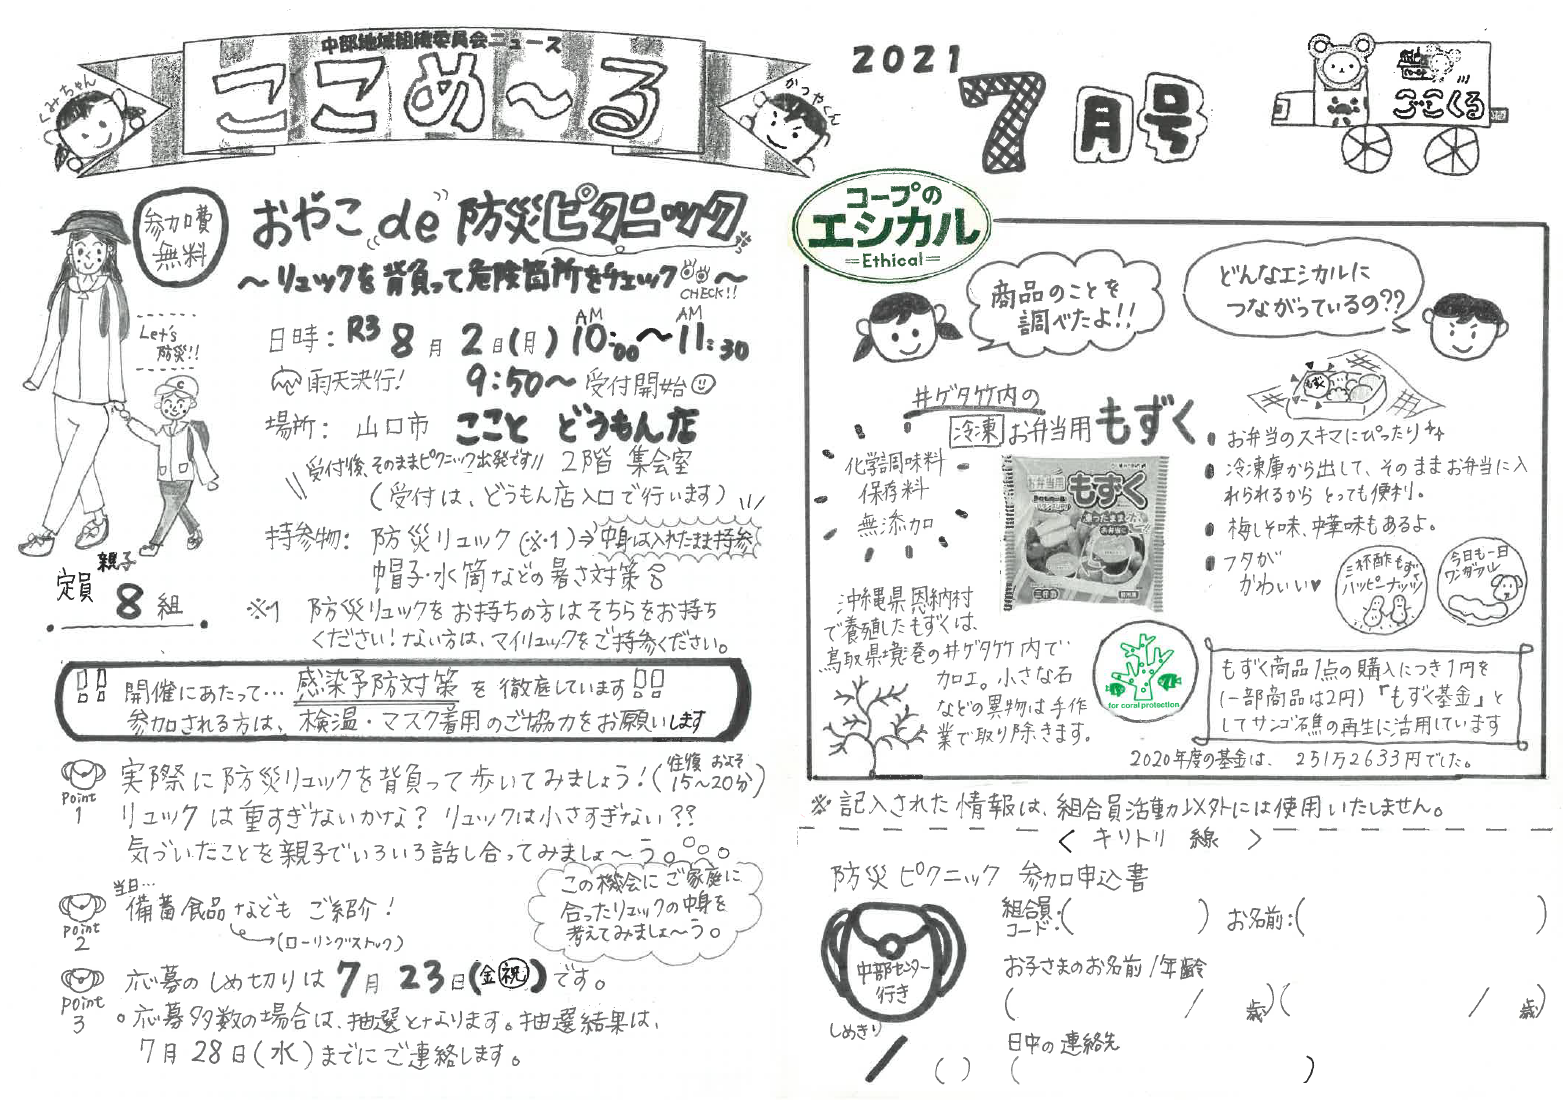 中部地域組織委員会ニュース
ここめ〜る
くみちゃん
かつやくん
2021
7月号
ここくる
参加費
無料
おやこ de 防災ピクニック
〜リュックを背負って危険箇所をチェック〜
CHECK!!
Let's
防災!!
日時: R3 8月2日(月) AM 10:00〜AM 11:30
雨天決行! 9:50〜受付開始
場所: 山口市 ここと どうもん店
受付後、そのままピクニック出発です!! 2階 集会室
(受付は、どうもん店入口で行います)
持参物: 防災リュック(※1)⇒中身は入れたまま持参
帽子・水筒などの暑さ対策
定員 親子 8組
※1 防災リュックをお持ちの方はそちらをお持ち
ください!ない方は、マイリュックをご持参ください。
!! 開催にあたって…感染予防対策を徹底しています!!
参加される方は、検温・マスク着用のご協力をお願いします
point
1
実際に防災リュックを背負って歩いてみましょう!(往復 およそ 15〜20分)
リュックは重すぎないかな? リュックは小さすぎない??
気づいたことを親子でいろいろ話し合ってみましょ〜う。
この機会にご家庭に
合ったリュックの中身を
考えてみましょ〜う。
point
2
当日…
備蓄食品などもご紹介!
(ローリングストック)
point
3
応募のしめ切りは7月23日(金祝)です。
○応募多数の場合は、抽選となります。抽選結果は、
7月28日(水)までにご連絡します。
コープの
エシカル
Ethical
商品のことを
調べたよ!!
どんなエシカルに
つながっているの??
井ゲタ竹内の
冷凍 お弁当用もずく
化学調味料
保存料
無添加
お弁当用
もずく
もずく
お弁当のスキマにぴったり
冷凍庫から出して、そのままお弁当に入
れられるからとっても便利。
梅しそ味、中華味もあるよ。
フタが
かわいい♥
三杯酢もずく
ハッピーナッツ
今日も一日
ワンダフル
沖縄県恩納村
で養殖したもずくは、
鳥取県境港の井ゲタ竹内で
加工。小さな石
などの異物は手作
業で取り除きます。
for coral protection
もずく商品1点の購入につき1円を
(一部商品は2円)『もずく基金』と
してサンゴ礁の再生に活用しています
2020年度の基金は、251万2633円でした。
※記入された情報は、組合員活動以外には使用いたしません。
〈キリトリ 線〉
防災ピクニック 参加申込書
組合員
コード:( ) お名前:( )
お子さまのお名前/年齢
( / 歳)( / 歳)
日中の連絡先
( )
中部センター
行き
しめきり
/ ( )